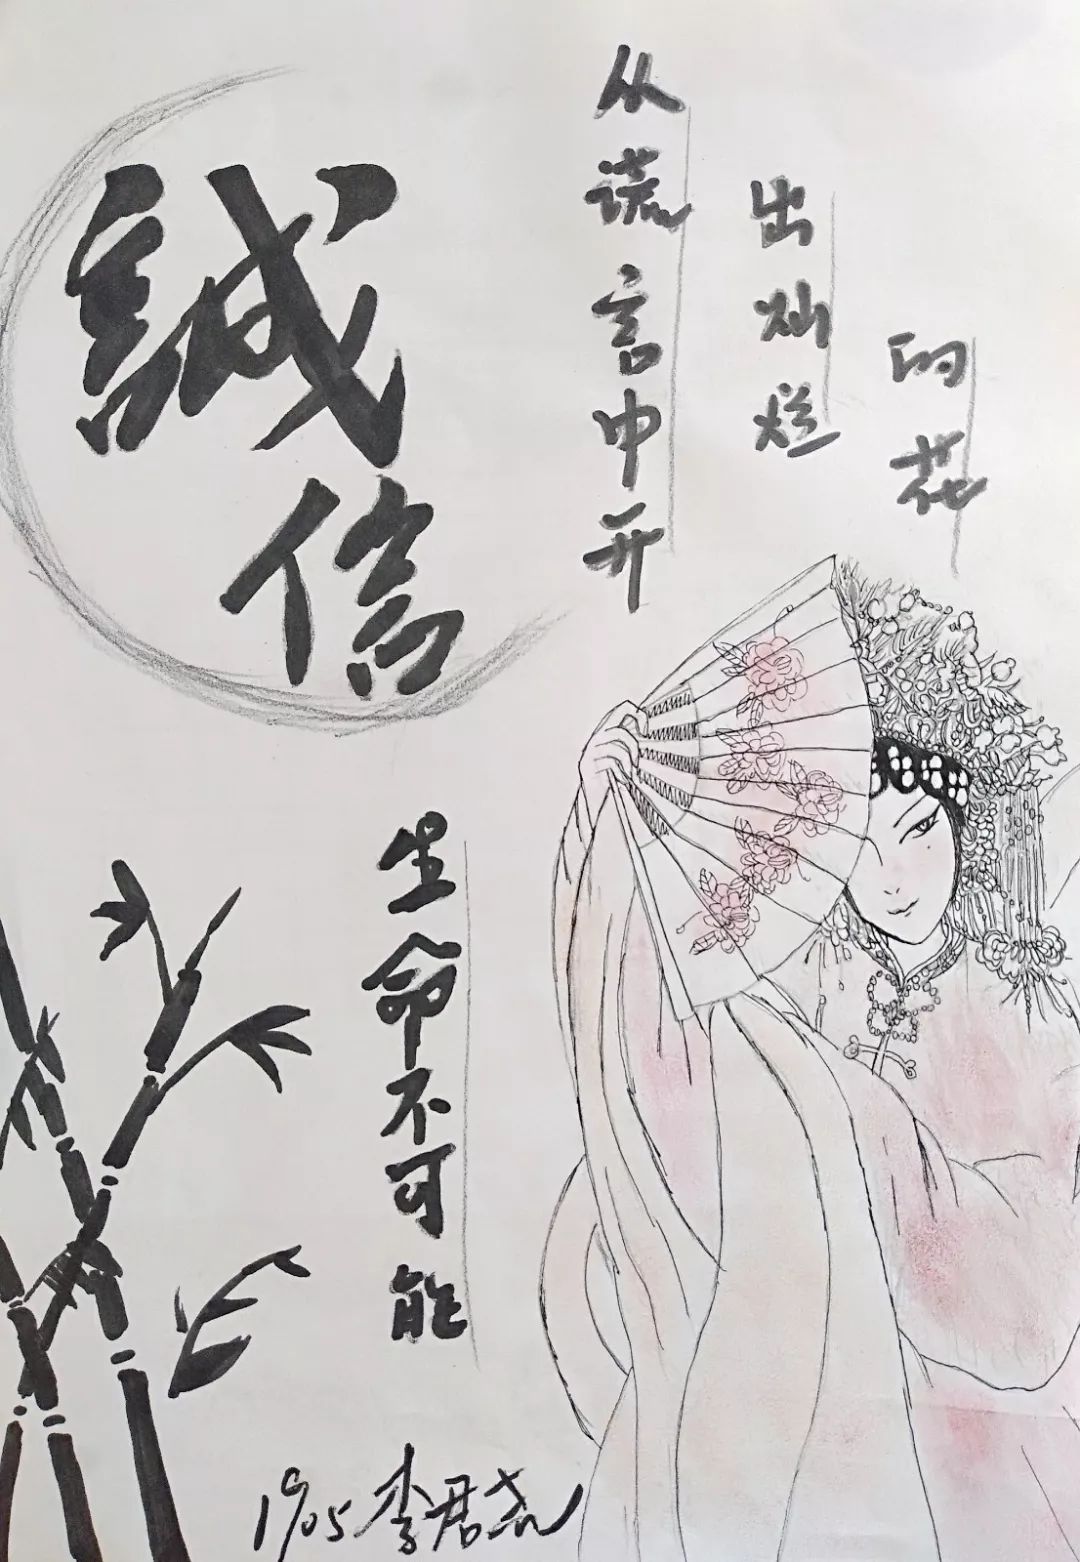 誠信
生命不可能
从谎言中开
出灿烂
的花
1905 李君尧